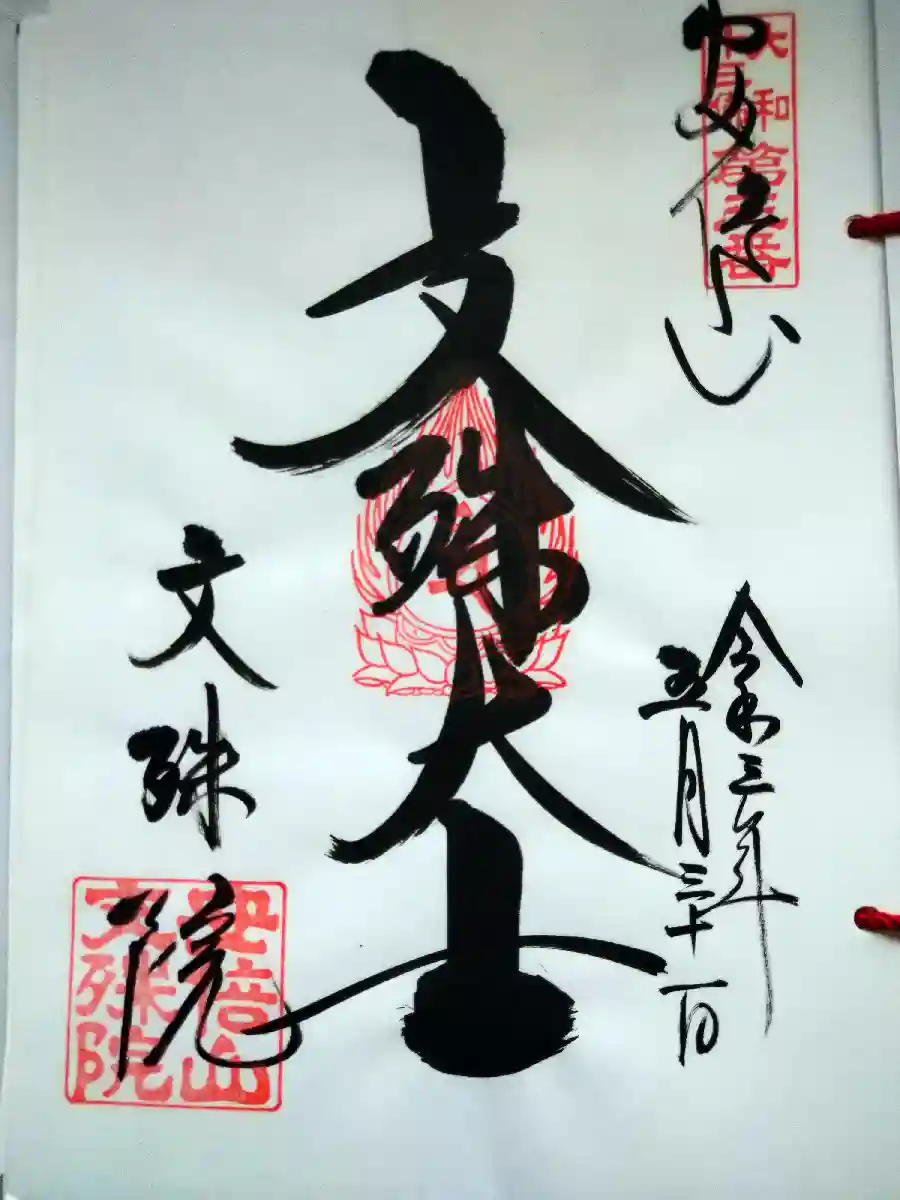 大和
十三佛
第三番
安倍山
令和三年
五月三十一日
文殊大士
文殊院
安倍山
文殊院